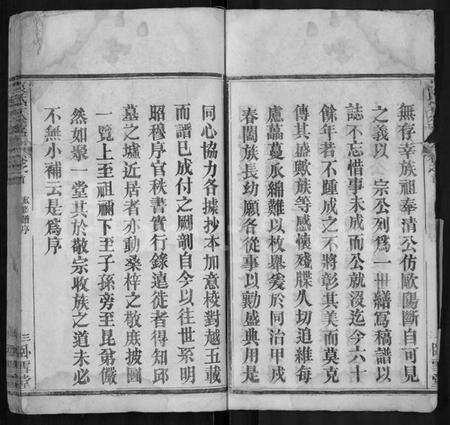 無存幸族祖奉清公仿歐陽斷自可見
之義以 宗公列爲一世繕寫稿譜以
誌不忘惜事未成而公就沒迄今六十
餘年若不踵成之不將彰其美而莫克
傳其盛歟族等感懷殘牒久切追維每
慮藟蔓承綿難以枚舉爰於同治甲戌
春闔族長幼願各從事以勷盛典用是
同心協力各據抄本加意校對越五載
而譜已成付之剞劂自今以往世系明
昭穆序官秩書實行錄遠徙者得知邱
墓之墟近居者亦動桑梓之敬庶披圖
一覽上至祖禰下至子孫旁至昆弟儼
然如聚一堂其於敬宗收族之道未必
不無小補云是爲序